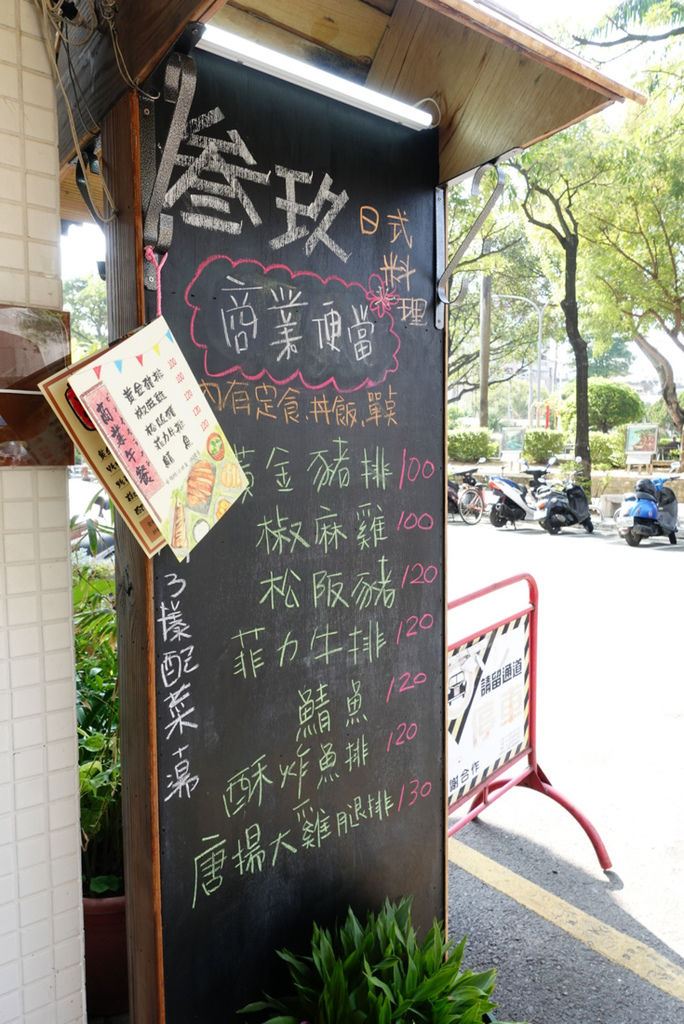 叁玖
日式料理
商業便當
內有定食.丼飯.單點
黃金豬排 100
椒麻雞 100
松阪豬 120
菲力牛排 120
鯖魚 120
酥炸魚排 120
唐揚大雞腿排 130
3樣配菜+湯
商業午餐
黃金豬排 100
椒麻雞 100
松阪豬 120
菲力牛排 120
鯖魚 120
請留通道
謝合作